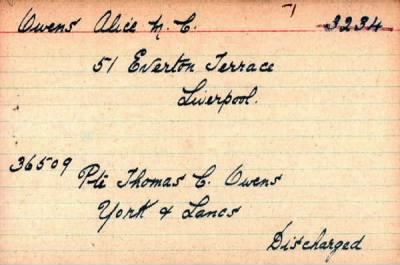 Owens Alice M. C. 3234
51 Everton Terrace
Liverpool.
36509 Pte Thomas C. Owens
York & Lancs
Discharged